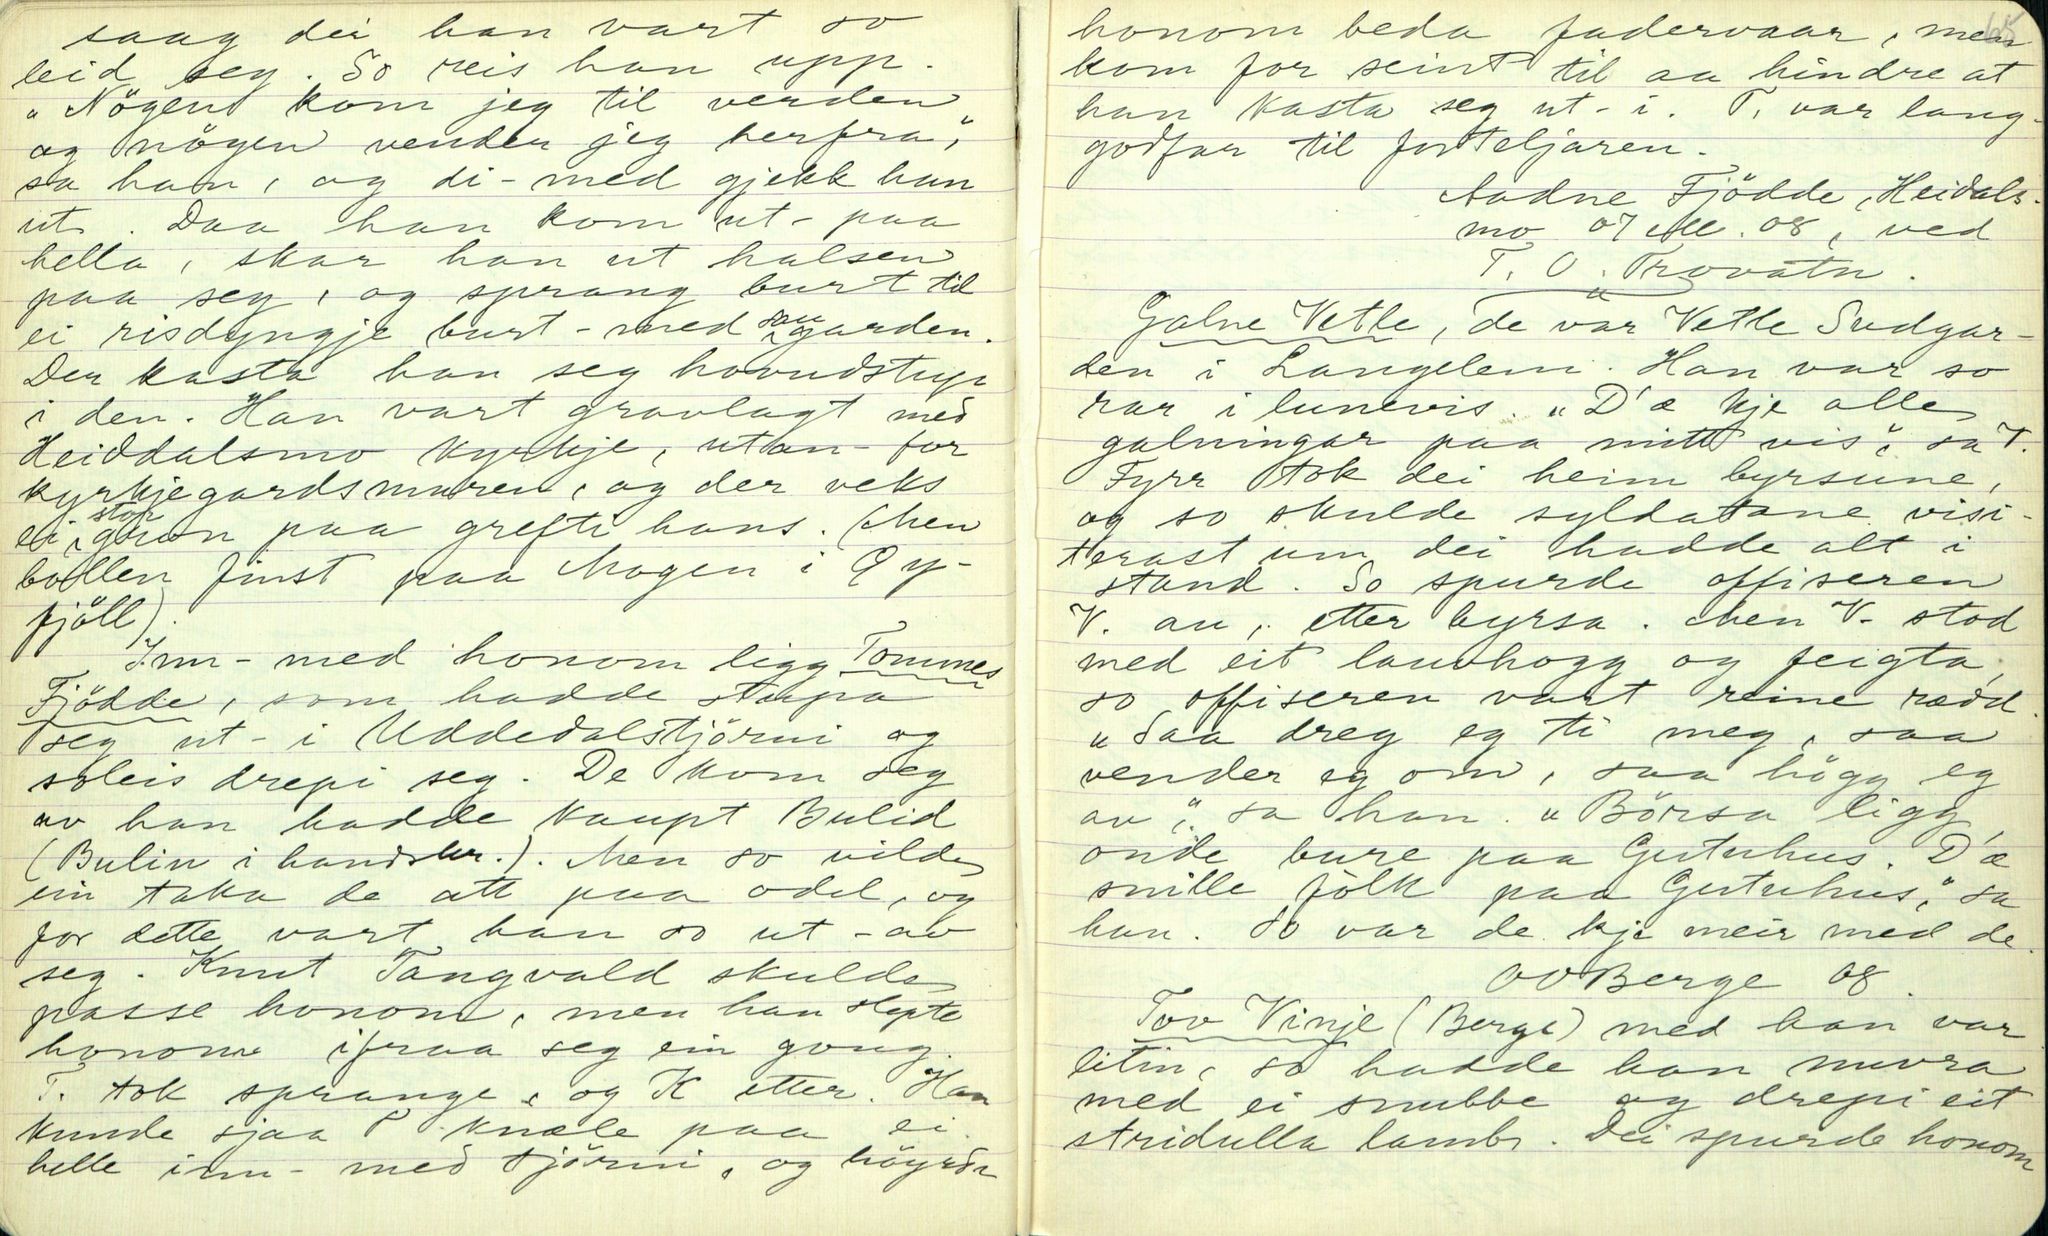 saag dei han vart so
leid seg. So reis han upp.
"Nögen kom jeg til verden
og nögen vender jeg herfra",
sa han, og di-med gjekk han
ut. Daa han kom ut-paa
hella, skar han ut halsen
paa seg, og sprang burt til
ei risdyngje burt-med sau garden.
Der kasta han seg hovudstup
i den. Han vart gravlagt med
Heiddalsmo kyrkje, utan-for
kyrkjegardsmuren, og der veks
ei stor gran paa grefti hans. (Men
bollen finst paa Mogen i Öy-
fjöll).
Inn-med honom ligg Tommes
Fjödde, som hadde stupa
seg ut-i Uddedalstjörni og
soleis drepi seg. De kom seg
av han hadde kaupt Bulid
(Bulin i handskr.). Men so vilde
ein taka de att paa odel, og
for dette vart han so ut-av
seg. Knut Tangvald skulde
passe honom, men han slepte
honom ifraa seg ein gong.
T. tok sprange, og K etter. Han
kunde sjaa T. knæle paa ei
helle inn-med tjörni, og höyrde
honom beda fadervaar, men
kom for seint til aa hindre at
han kasta seg ut-i. T. var lang-
godfar til forteljaren.
Aadne Fjödde, Heidals-
mo 07 08, ved
T. O. Trovatn.
Galne Vetle, de var Vetle Sudgar-
den i Langelem. Han var so
rar i lunevis. "D'æ kje alle
galningar paa mitt vis", sa V.
Fyrr tok dei heim byrsune,
og so skulde syldatane visi-
terast um dei hadde alt i
stand. So spurde offiseren
V. au, etter byrsa. Men V. stod
med eit lauvhogg og feigta,
so offiseren vart reine rædd.
"Saa dreg eg ti meg, saa
vender eg om, saa högg eg
av", sa han. "Börsa ligg
onde bure paa Gutuhus. D'æ
snille folk paa Gutuhus", sa
han. So var de kje meir med de.
OO Berge 08
Tov Vinje (Berge) med han var
litin, so hadde han muvra
med ei snubbe og drepi eit
stridulla lamb. Dei spurde honom